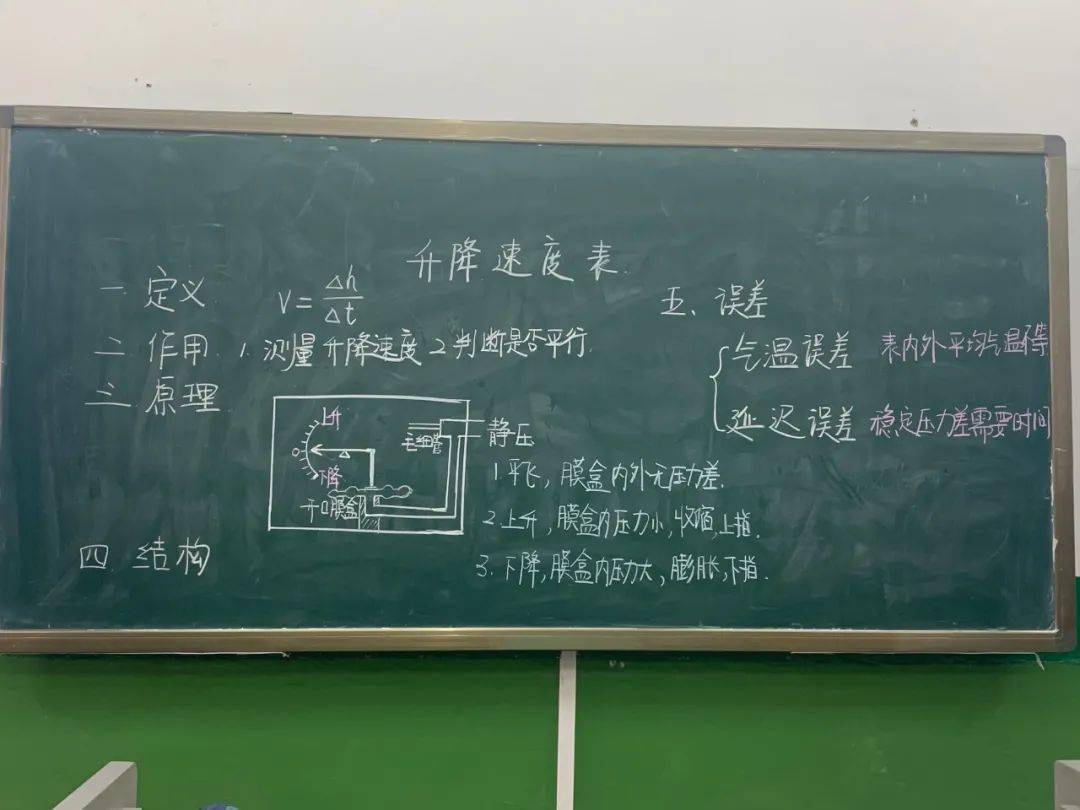 升降速度表
一 定义 V=Δh/Δt
二 作用 1.测量升降速度 2.判断是否平行.
三 原理
上升
0
下降
开口膜盒
毛细管
静压
1.平飞，膜盒内外无压力差.
2.上升，膜盒内压力小，收缩,上指.
3.下降,膜盒内压力大，膨胀,下指.
四 结构
五、误差
气温误差 表内外平均气温不等
延迟误差 稳定压力差需要时间